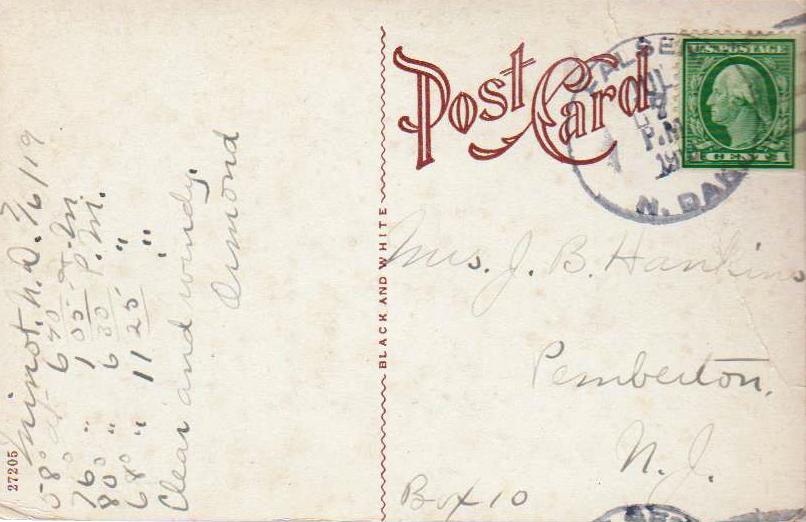 Minot, N.D. 7/6/19
58° at 6 40 A.M.
76° " 1 05 P.M.
80° " 6 30 "
68° " 11 25 "
Clear and windy.
Ormond
27205
BLACK AND WHITE
Post Card
P.M.
N. DAK
U.S. POSTAGE
1 CENT 1
Mrs. J. B. Hankins
Pemberton,
N. J.
Box 10